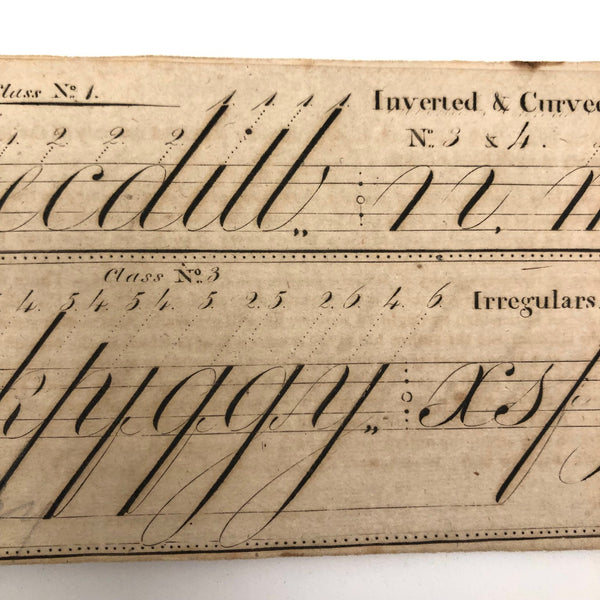 Class No. 1. 1 1 1 1 Inverted & Curve
1. 2 2 2 No. 3 & 4.
ecdill,, n,
Class No. 3
4. 5 4. 5 4. 5 2 5 2 6 4. 6 Irregulars.
hypgggy,, xsp